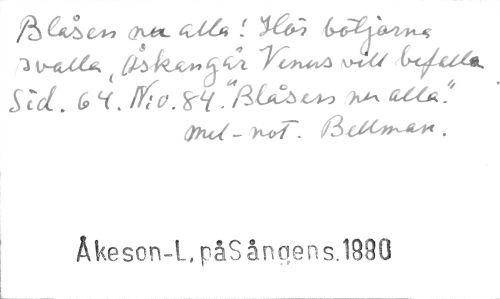 Blåsen nu alla! Hör böljorna
svalla, Åskan går Venus vill befalla
Sid. 64. N:o. 84. "Blåsen nu alla."
mel-not. Bellman.
Åkeson-L, påSångens.1880